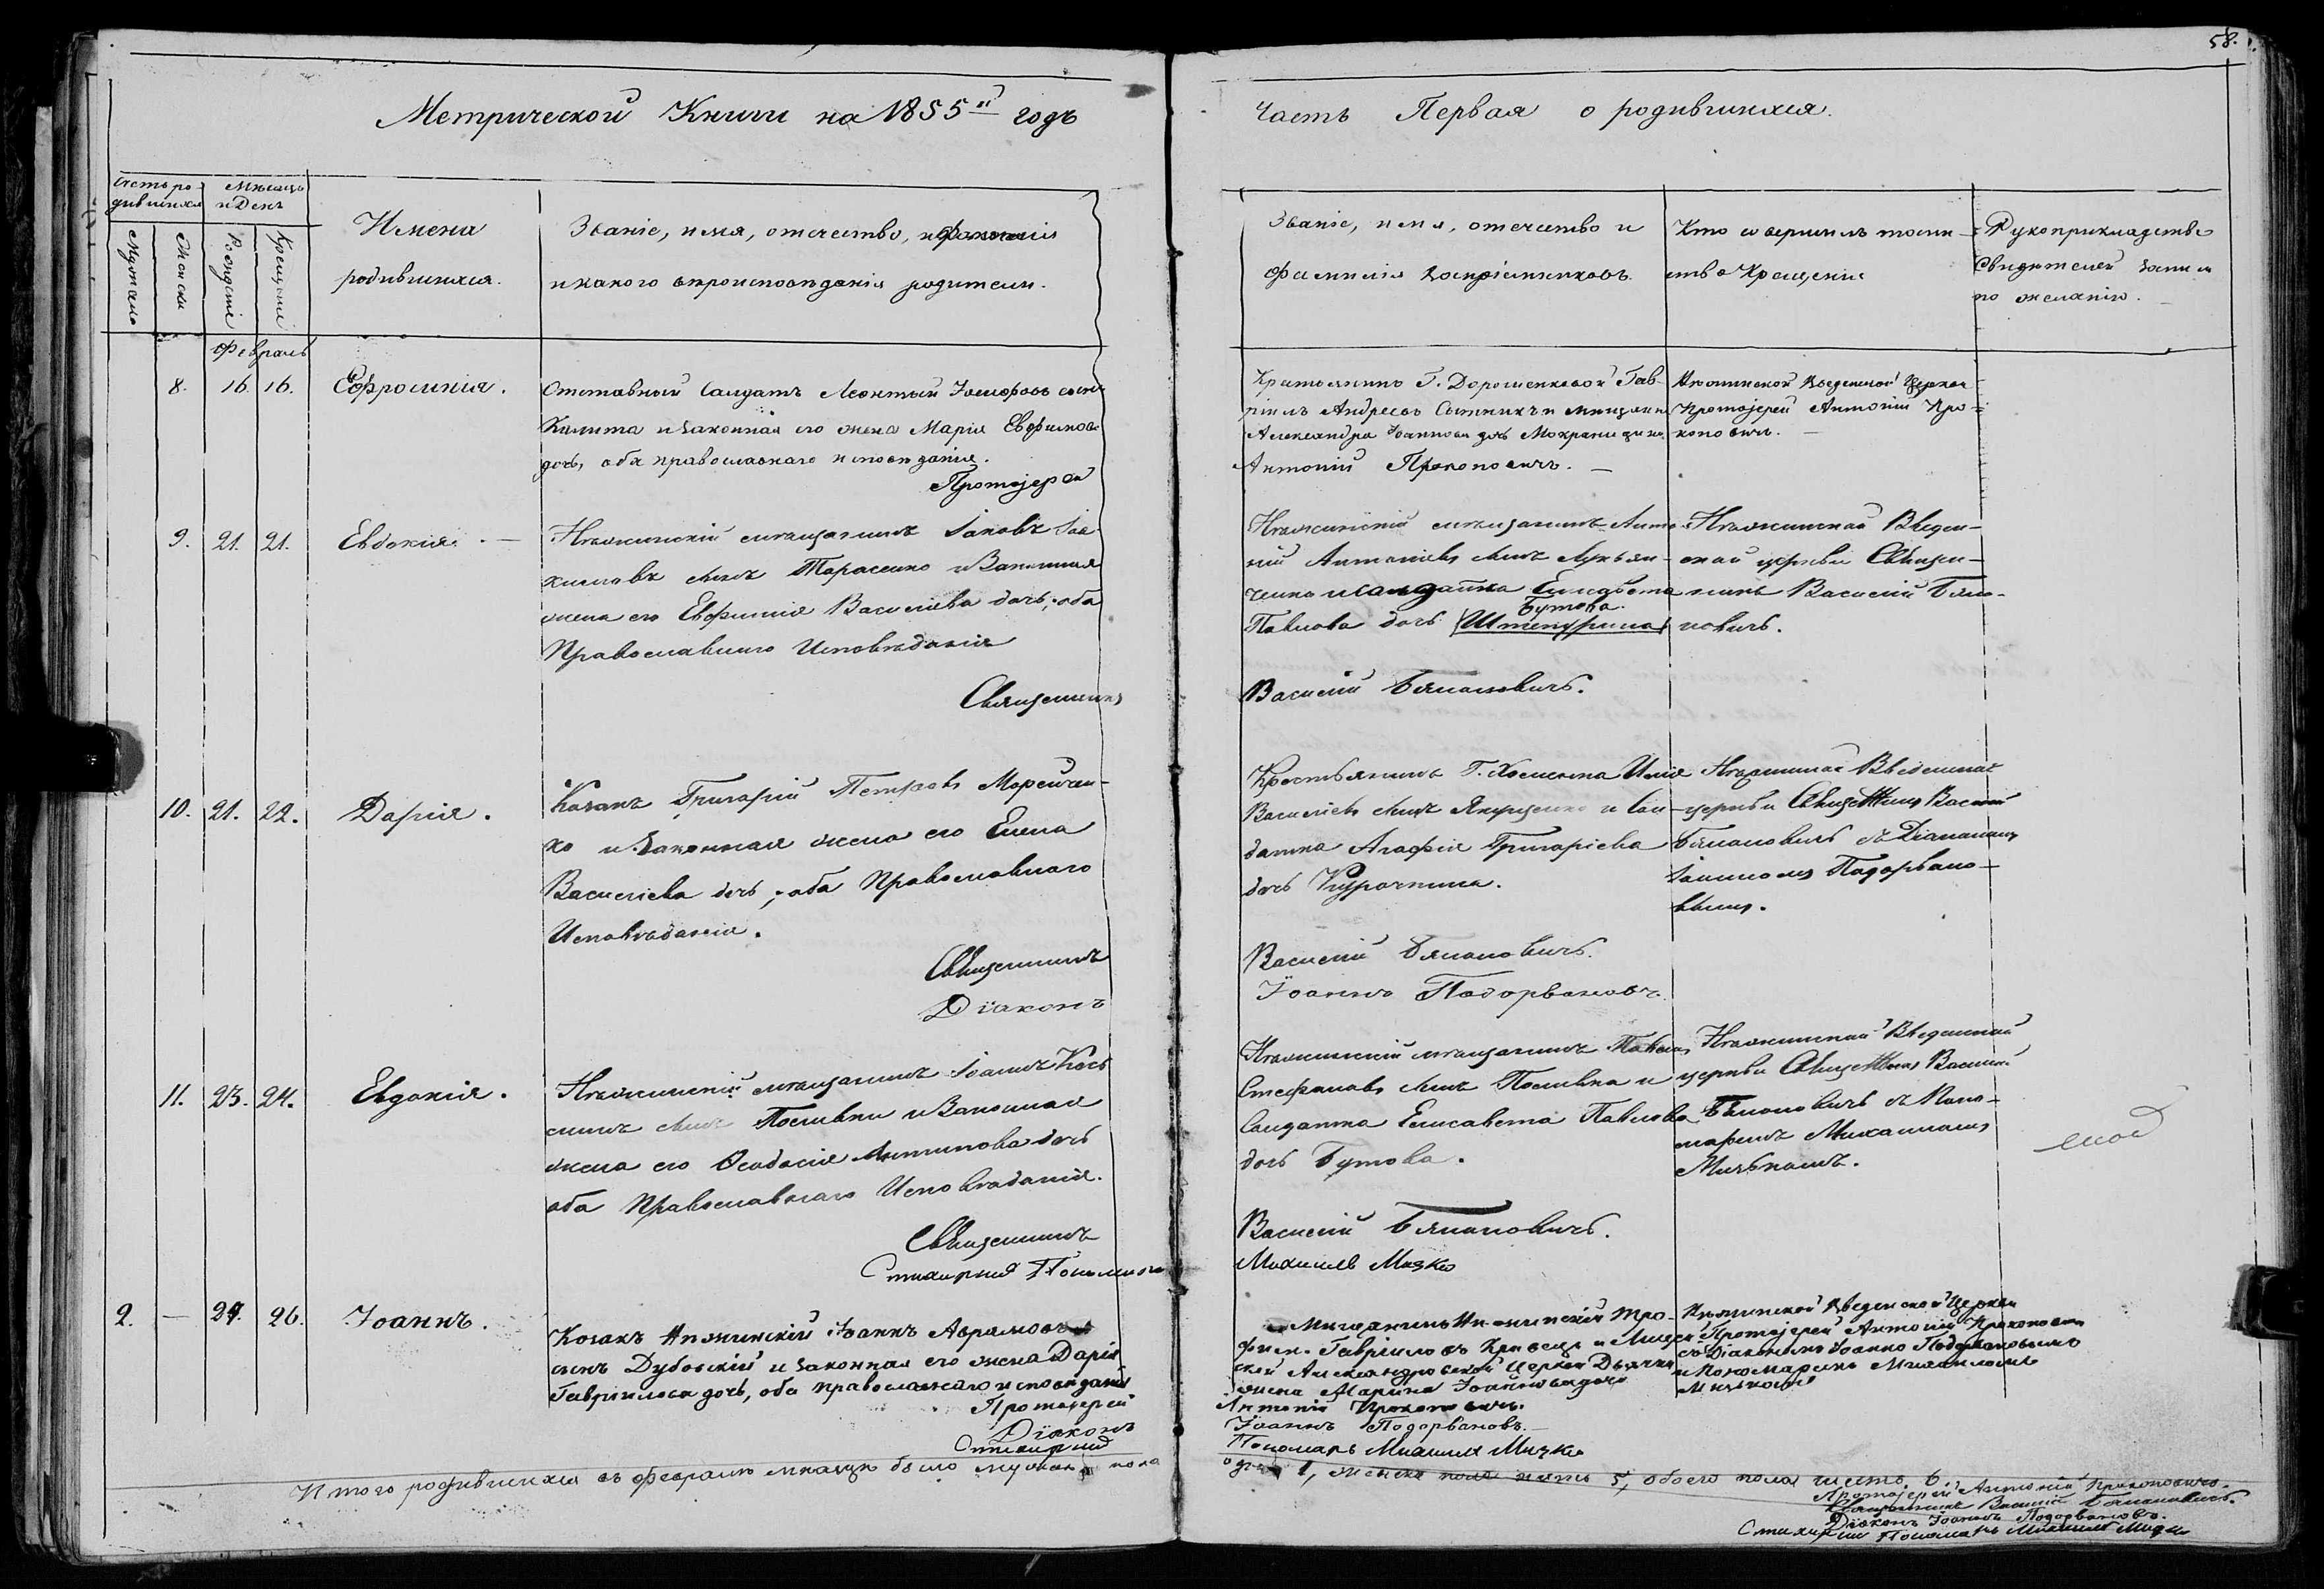 58.
Метрической Книги на 1855й годъ
Часть Первая о родившихся.
Счетъ родившихся
Мѣсяцъ и День
Мужеска
Женска
Рожденія
Крещенія
Имена
родившихся.
Званіе, имя, отечество, и фамилія
и какого вѣроисповѣданія родители.
Званіе, имя, отечество и
фамилія воспріемниковъ
Кто совершилъ таин-
ство Крещенія
Рукоприкладство
Свидѣтелей записи
по желанію.
Февраль
8. 16. 16. Евфросинія.
Отставный Солдатъ Леонтый Іосифовъ сынъ
Калита и законная его жена Марія Евфимова
дочь, оба православнаго исповѣданія.
Протоіерей
Крестьянинъ Г. Дорошенковой Гав-
ріилъ Андреевъ Сытникъ и мѣщанка
Александра Іоаннова дочь
Антоній Прокоповичъ.
Нѣжинской Введенской Церкви
Протоіерей Антоній Про-
коповичъ.
9. 21. 21. Евдокія.
Нѣжинскій мѣщанинъ Іаковъ Іоа-
кимовъ сынъ Тарасенко и Законная
жена его Евфимія Василіева дочь; оба
Православнаго Исповѣданія
Священникъ
Нѣжинскій мѣщанинъ Анто-
ній Антоніевъ сынъ Лукьян-
ченко и солдатка Елисавета
Бутова.
Павлова дочь
Василій Бялановичъ.
Нѣжинской Введен-
ской церкви Священ-
никъ Василій Бяла-
новичъ.
10. 21. 22. Дарія.
Козакъ Григорій Петровъ
ко и Законная жена его Елена
Василіева дочь; оба Православнаго
Исповѣданія.
Священникъ
Діаконъ
Крестьянинъ Г. Илія
Василіевъ сынъ Якущенко и Сол-
датка Агафія Григоріева
дочь Курочкина.
Василій Бяланович.
Іоаннъ Подорвановъ.
Нѣжинской Введенской
церкви Священникъ Василій
Бялановичъ съ Діакономъ
Іоанномъ Подорвано-
вымъ.
11. 23. 24. Евдокія.
Нѣжинскій мѣщанинъ Іоаннъ Кось
минъ сынъ Посивки и Законная
жена его Ѳеодосія Антипова дочь
оба Православнаго Исповѣданія.
Священникъ
Стихарный Пономарь
Нѣжинскій мѣщанинъ Павелъ
Стефановъ сынъ Посивка и
Солдатка Елисавета Павлова
дочь Бутова.
Василій Бялановичъ.
Михаилъ Мизко
Нѣжинской Введенской
церкви Священникъ Василій
Бялановичъ съ Поно-
маремъ Михаиломъ
Мизькомъ.
2. — 24. 26. Іоаннъ.
Козакъ Нѣжинскій Іоаннъ Аврамовъ
сынъ Дубовскій и законная его жена Дарія
Гавріилова дочь, оба православнаго исповѣданія
Протоіерей
Діаконъ
Стихарный
Мѣщанинъ Нѣжинскій Тро-
фимъ Гавріиловъ Кривецъ и
ской Александровской Церкви Дьячка
жена Марина Іоаннова дочь
Антоній Прокоповичъ.
Іоаннъ Подорвановъ.
Пономарь Михаилъ Мизко
Нѣжинской Введенской Церкви
Протоіерей Антоній Прокоповичъ
съ Діакономъ Іоанномъ Подорвановымъ
и Пономаремъ Михаиломъ
Мизькомъ
Итого родившихся въ февралѣ мѣсяцѣ было мужеска пола
одинъ 1, женска пола пять 5, обоего пола шесть 6.
Протоіерей Антоній Прокоповичъ.
Священникъ Василій Бялановичъ.
Діаконъ Іоаннъ Подорвановъ.
Стихарный Пономарь Михаилъ Мизко